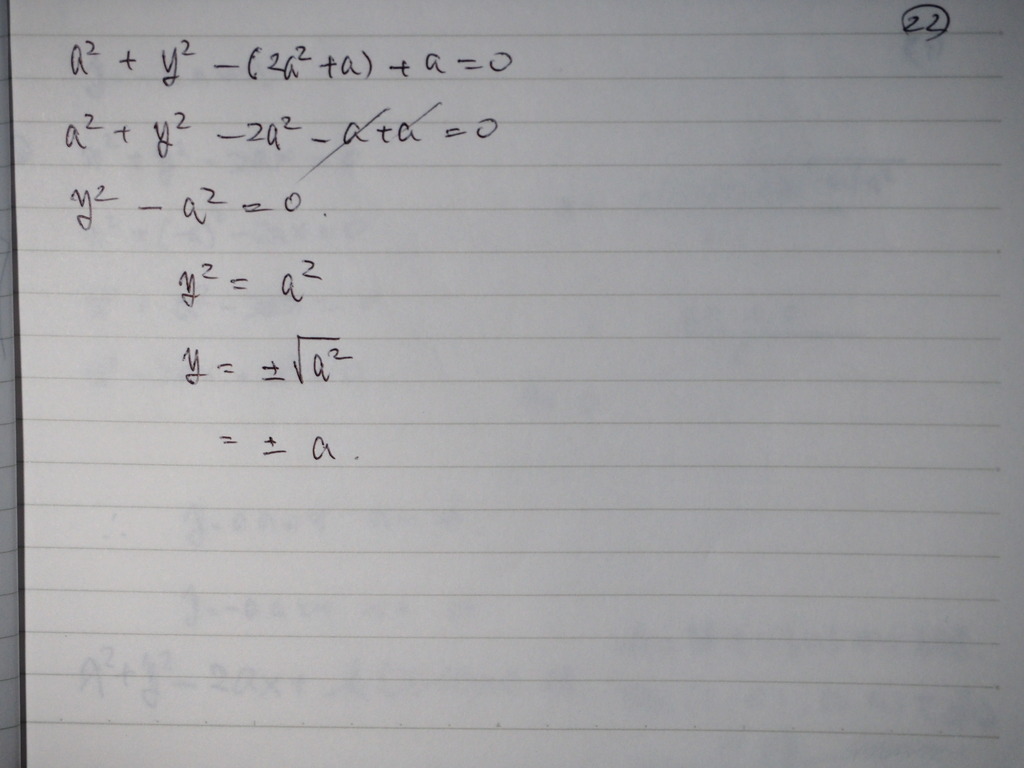 22
a² + y² - (2a² + a) + a = 0
a² + y² - 2a² - a + a = 0
y² - a² = 0.
y² = a²
y = ±√a²
= ± a.